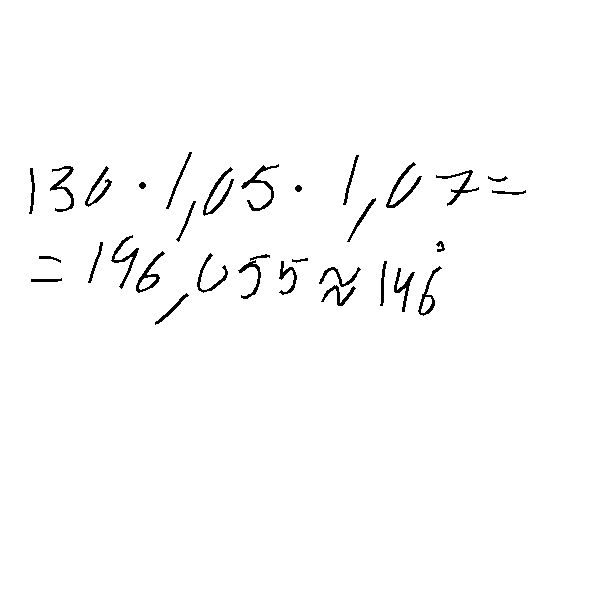 130 · 1,05 · 1,07 =
= 146,055 ≈ 146